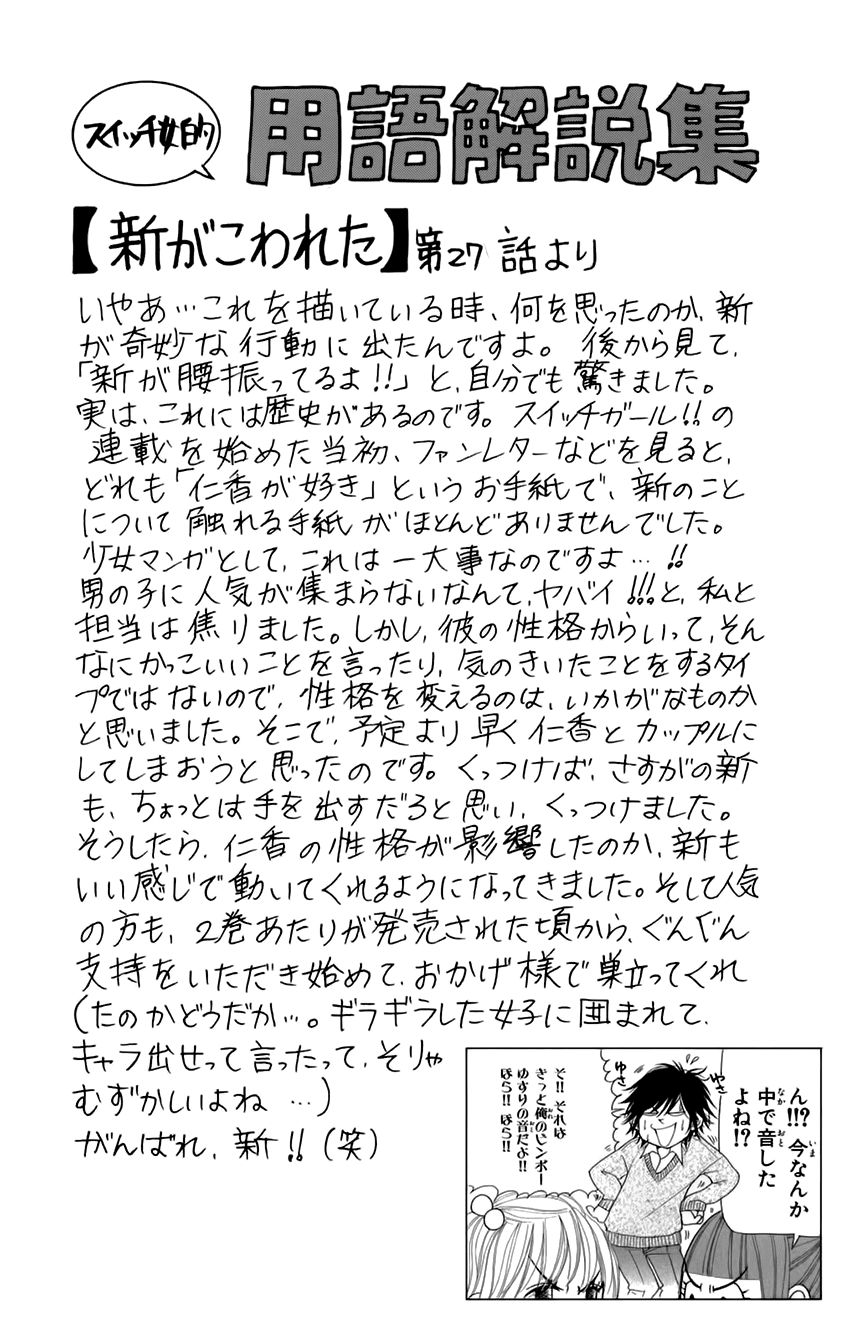 スイッチ的
用語解説集
【新がこわれた】第27話より
いやあ…これを描いている時、何を思ったのか、新
が奇妙な行動に出たんですよ。後から見て、
「新が腰振ってるよ!!」と、自分でも驚きました。
実は、これには歴史があるのです。スイッチガール!!の
連載を始めた当初、ファンレターなどを見ると、
どれも「仁香が好き」というお手紙で、新のこと
について触れる手紙がほとんどありませんでした。
少女マンガとして、これは一大事なのですよ…!!
男の子に人気が集まらないなんて、ヤバイ!!!と、私と
担当は焦りました。しかし、彼の性格からいって、そん
なにかっこいいことを言ったり、気のきいたことをするタイ
プではないので、性格を変えるのは、いかがなものか
と思いました。そこで、予定より早く仁香とカップルに
してしまおうと思ったのです。くっつけば、さすがの新
も、ちょっとは手を出すだろと思い、くっつけました。
そうしたら、仁香の性格が影響したのか、新も
いい感じで動いてくれるようになってきました。そして人気
の方も、2巻あたりが発売された頃から、ぐんぐん
支持をいただき始めて、おかげ様で巣立ってくれ
(たのかどうだか…。ギラギラした女子に囲まれて、
キャラ出せって言ったって、そりゃ
むずかしいよね…)
がんばれ、新!!(笑)
ん!!?今なんか
中で音した
よね!?
ゆさ
ゆさ
そ!!それは
きっと俺のビンボー
ゆすりの音だよ!!
ほら!!ほら!!